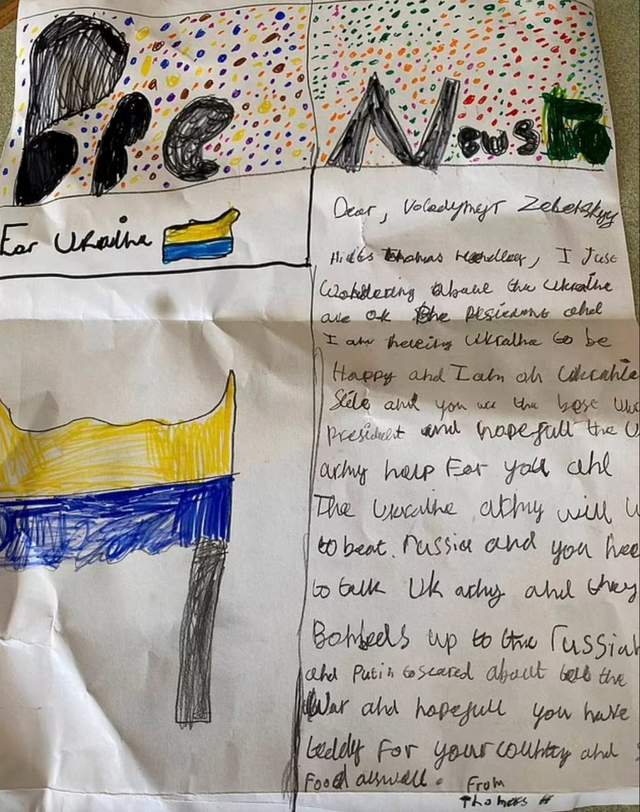 Pre News Fo
For Ukraine
Dear, Volodymyr Zelenskyy
Thomas I Just
Wondering about the Ukraine
are ok the and
I am Ukraine to be
Happy and I am on Ukraine
Side and you are the best
president and hopefull the U
army help For you and
The Ukraine army will
to beat. russia and you nee
to talk UK army and they
up to the russian
and Putin to scared about the
War and hopefull you have
teddy For your country and
Food aswell. From
Thomas H